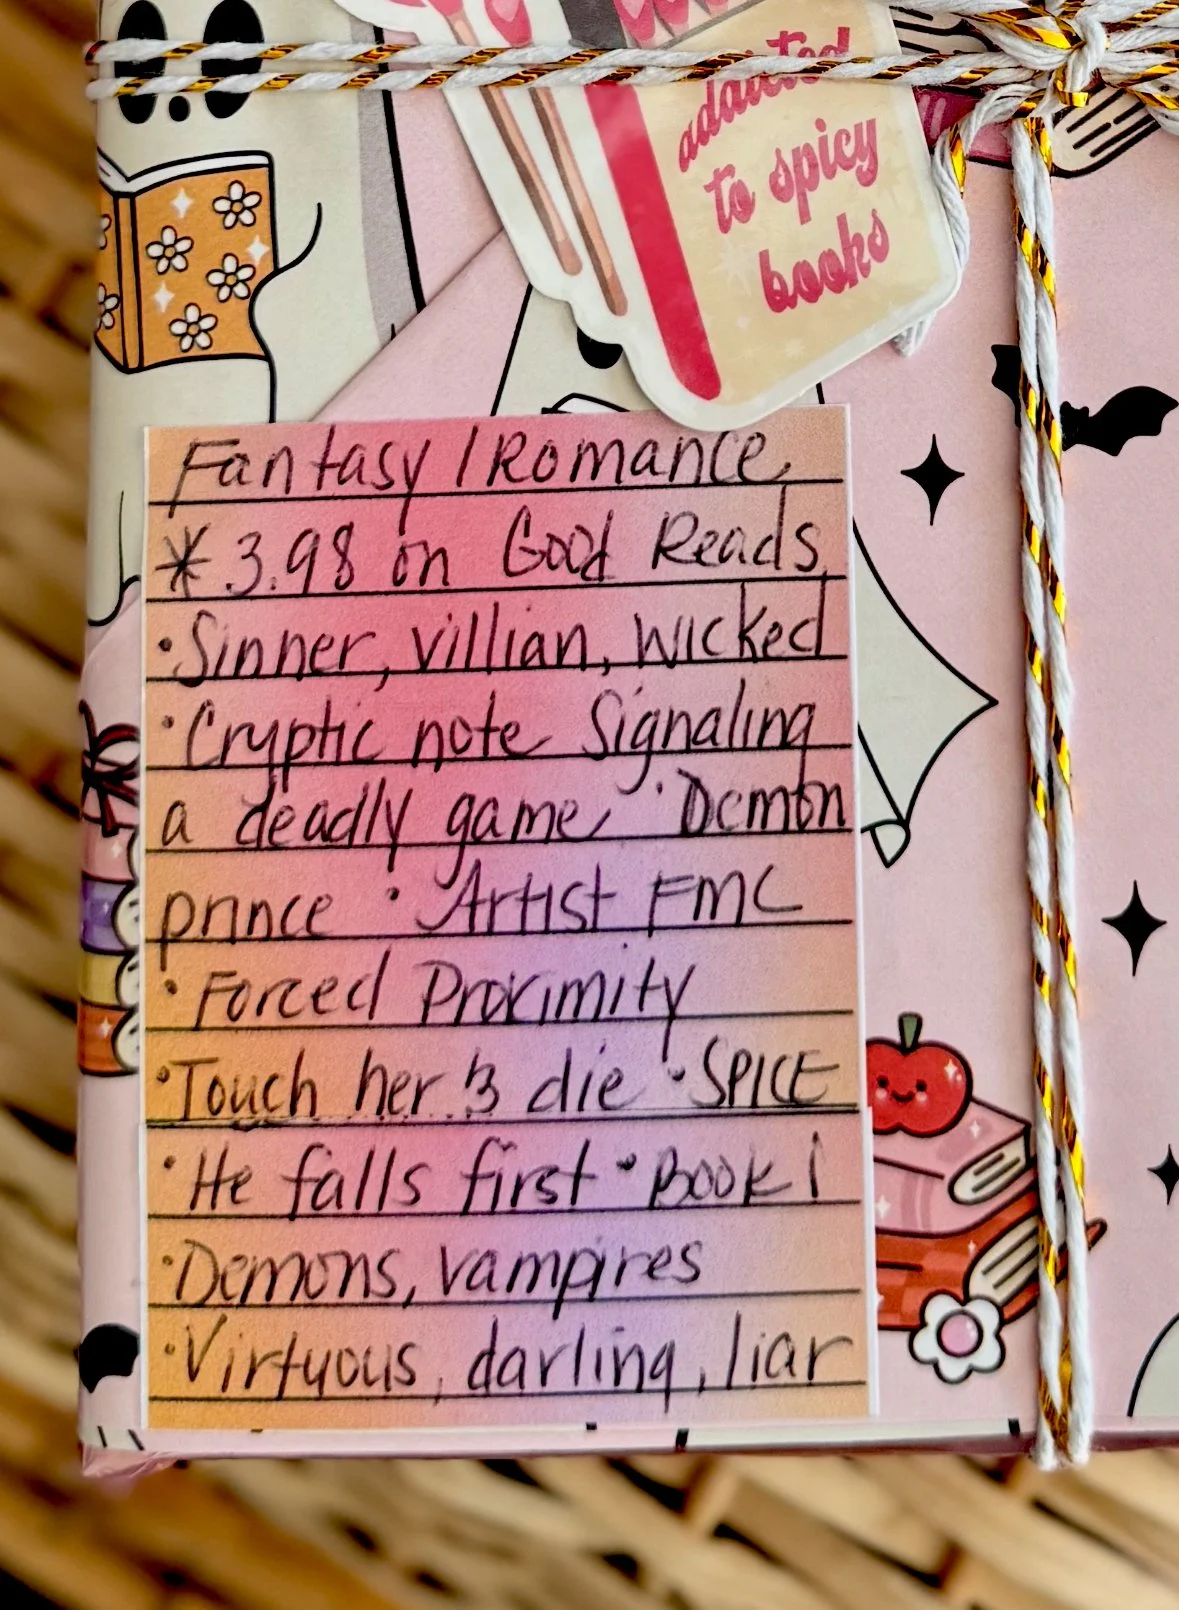 addicted
to spicy
books
Fantasy / Romance
* 3.98 on Good Reads
• Sinner, villian, Wicked
• Cryptic note Signaling
a deadly game • Demon
prince • Artist FMC
• Forced Proximity
• Touch her & die • SPICE
• He falls first • Book 1
• Demons, vampires
• Virtuous, darling, liar